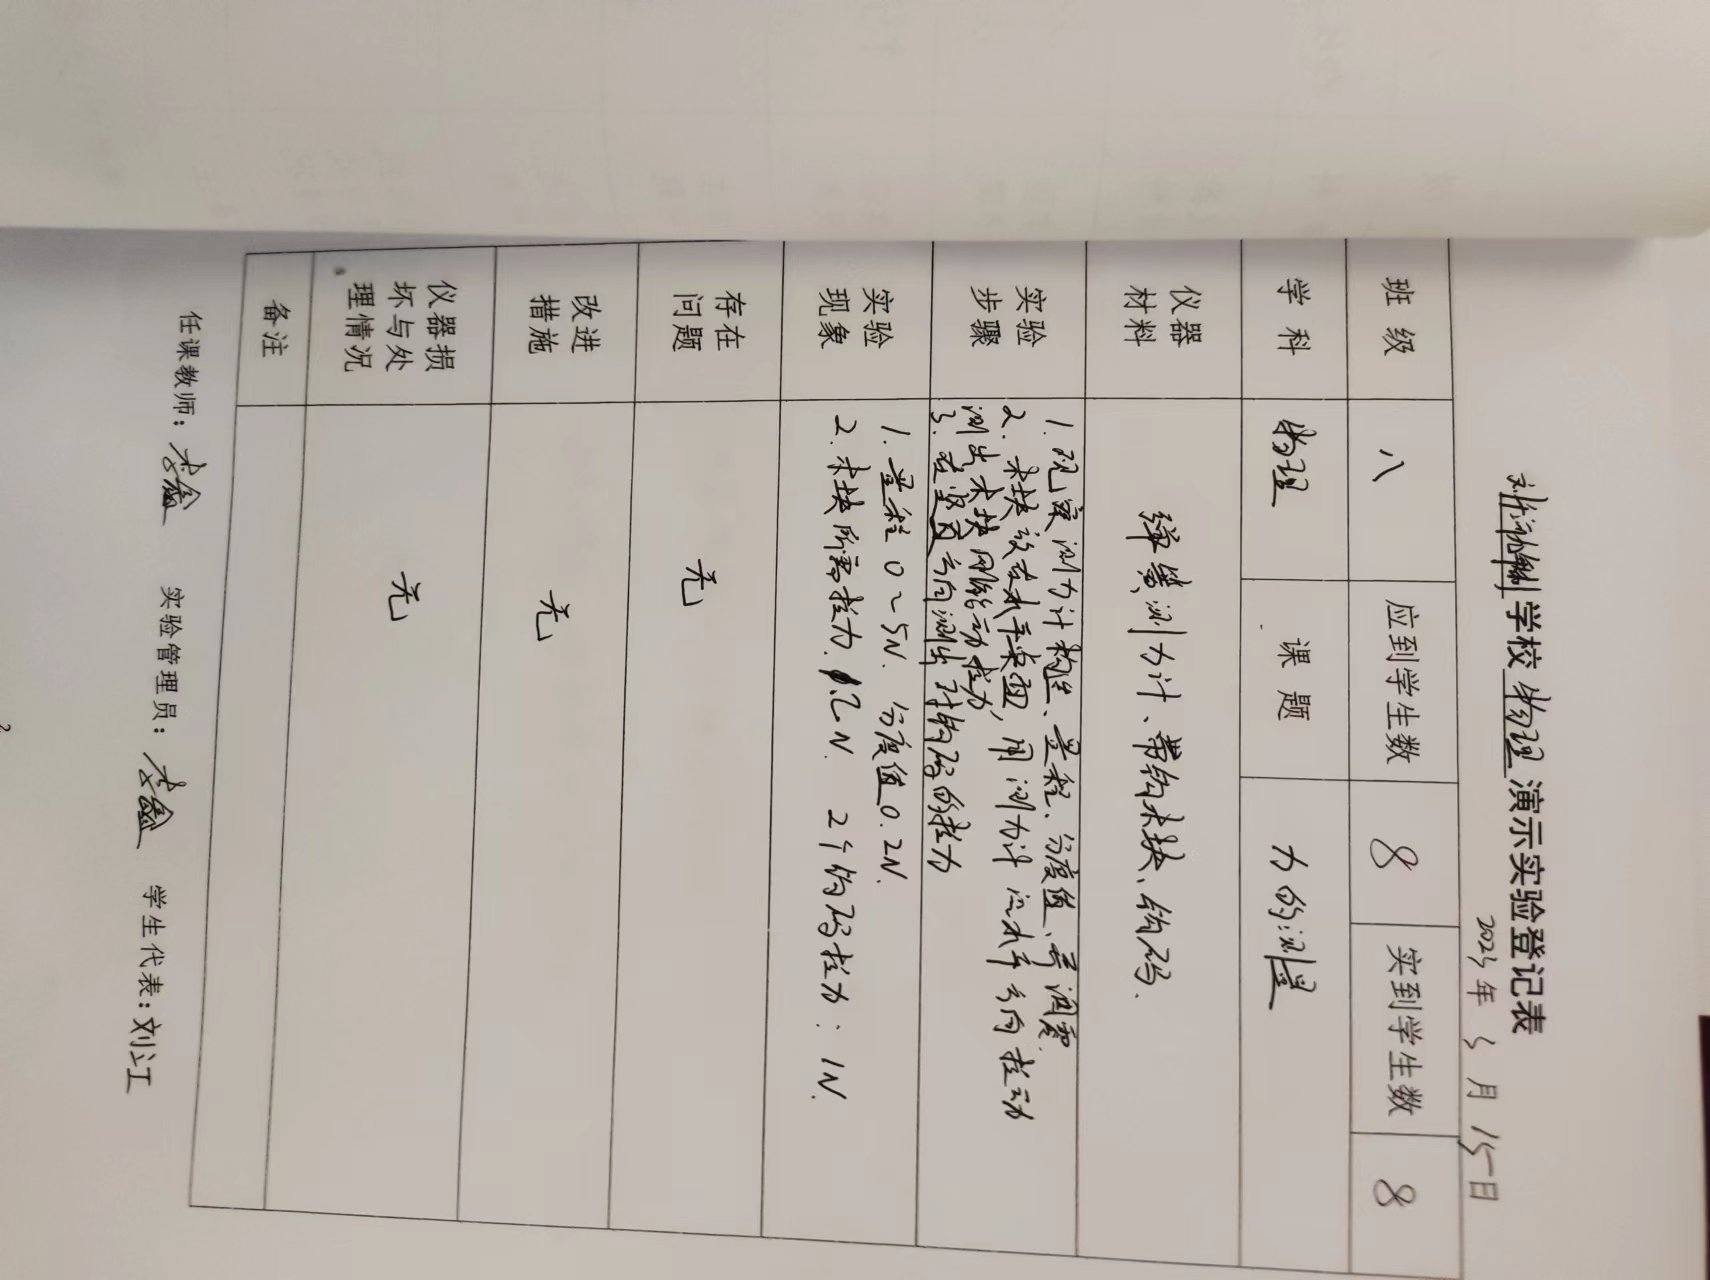 学校物理演示实验登记表
2023年3月15日
班级 八 应到学生数 8 实到学生数 8
学科 物理 课题 力的测量
仪器材料 弹簧测力计、带钩木块、钩码.
实验步骤
1.观察测力计构造、量程、分度值、并调零.
2.木块放在水平桌面,用测力计沿水平方向拉动
测出木块刚能动拉力
3.在竖直方向测出对钩码的拉力
实验现象
1.量程0~5N. 分度值0.2N.
2.木块所需拉力. N. 2个钩码拉力:1N.
存在问题 无
改进措施 无
仪器损坏与处理情况 无
备注
任课教师:李鑫 实验管理员:李鑫 学生代表:刘江